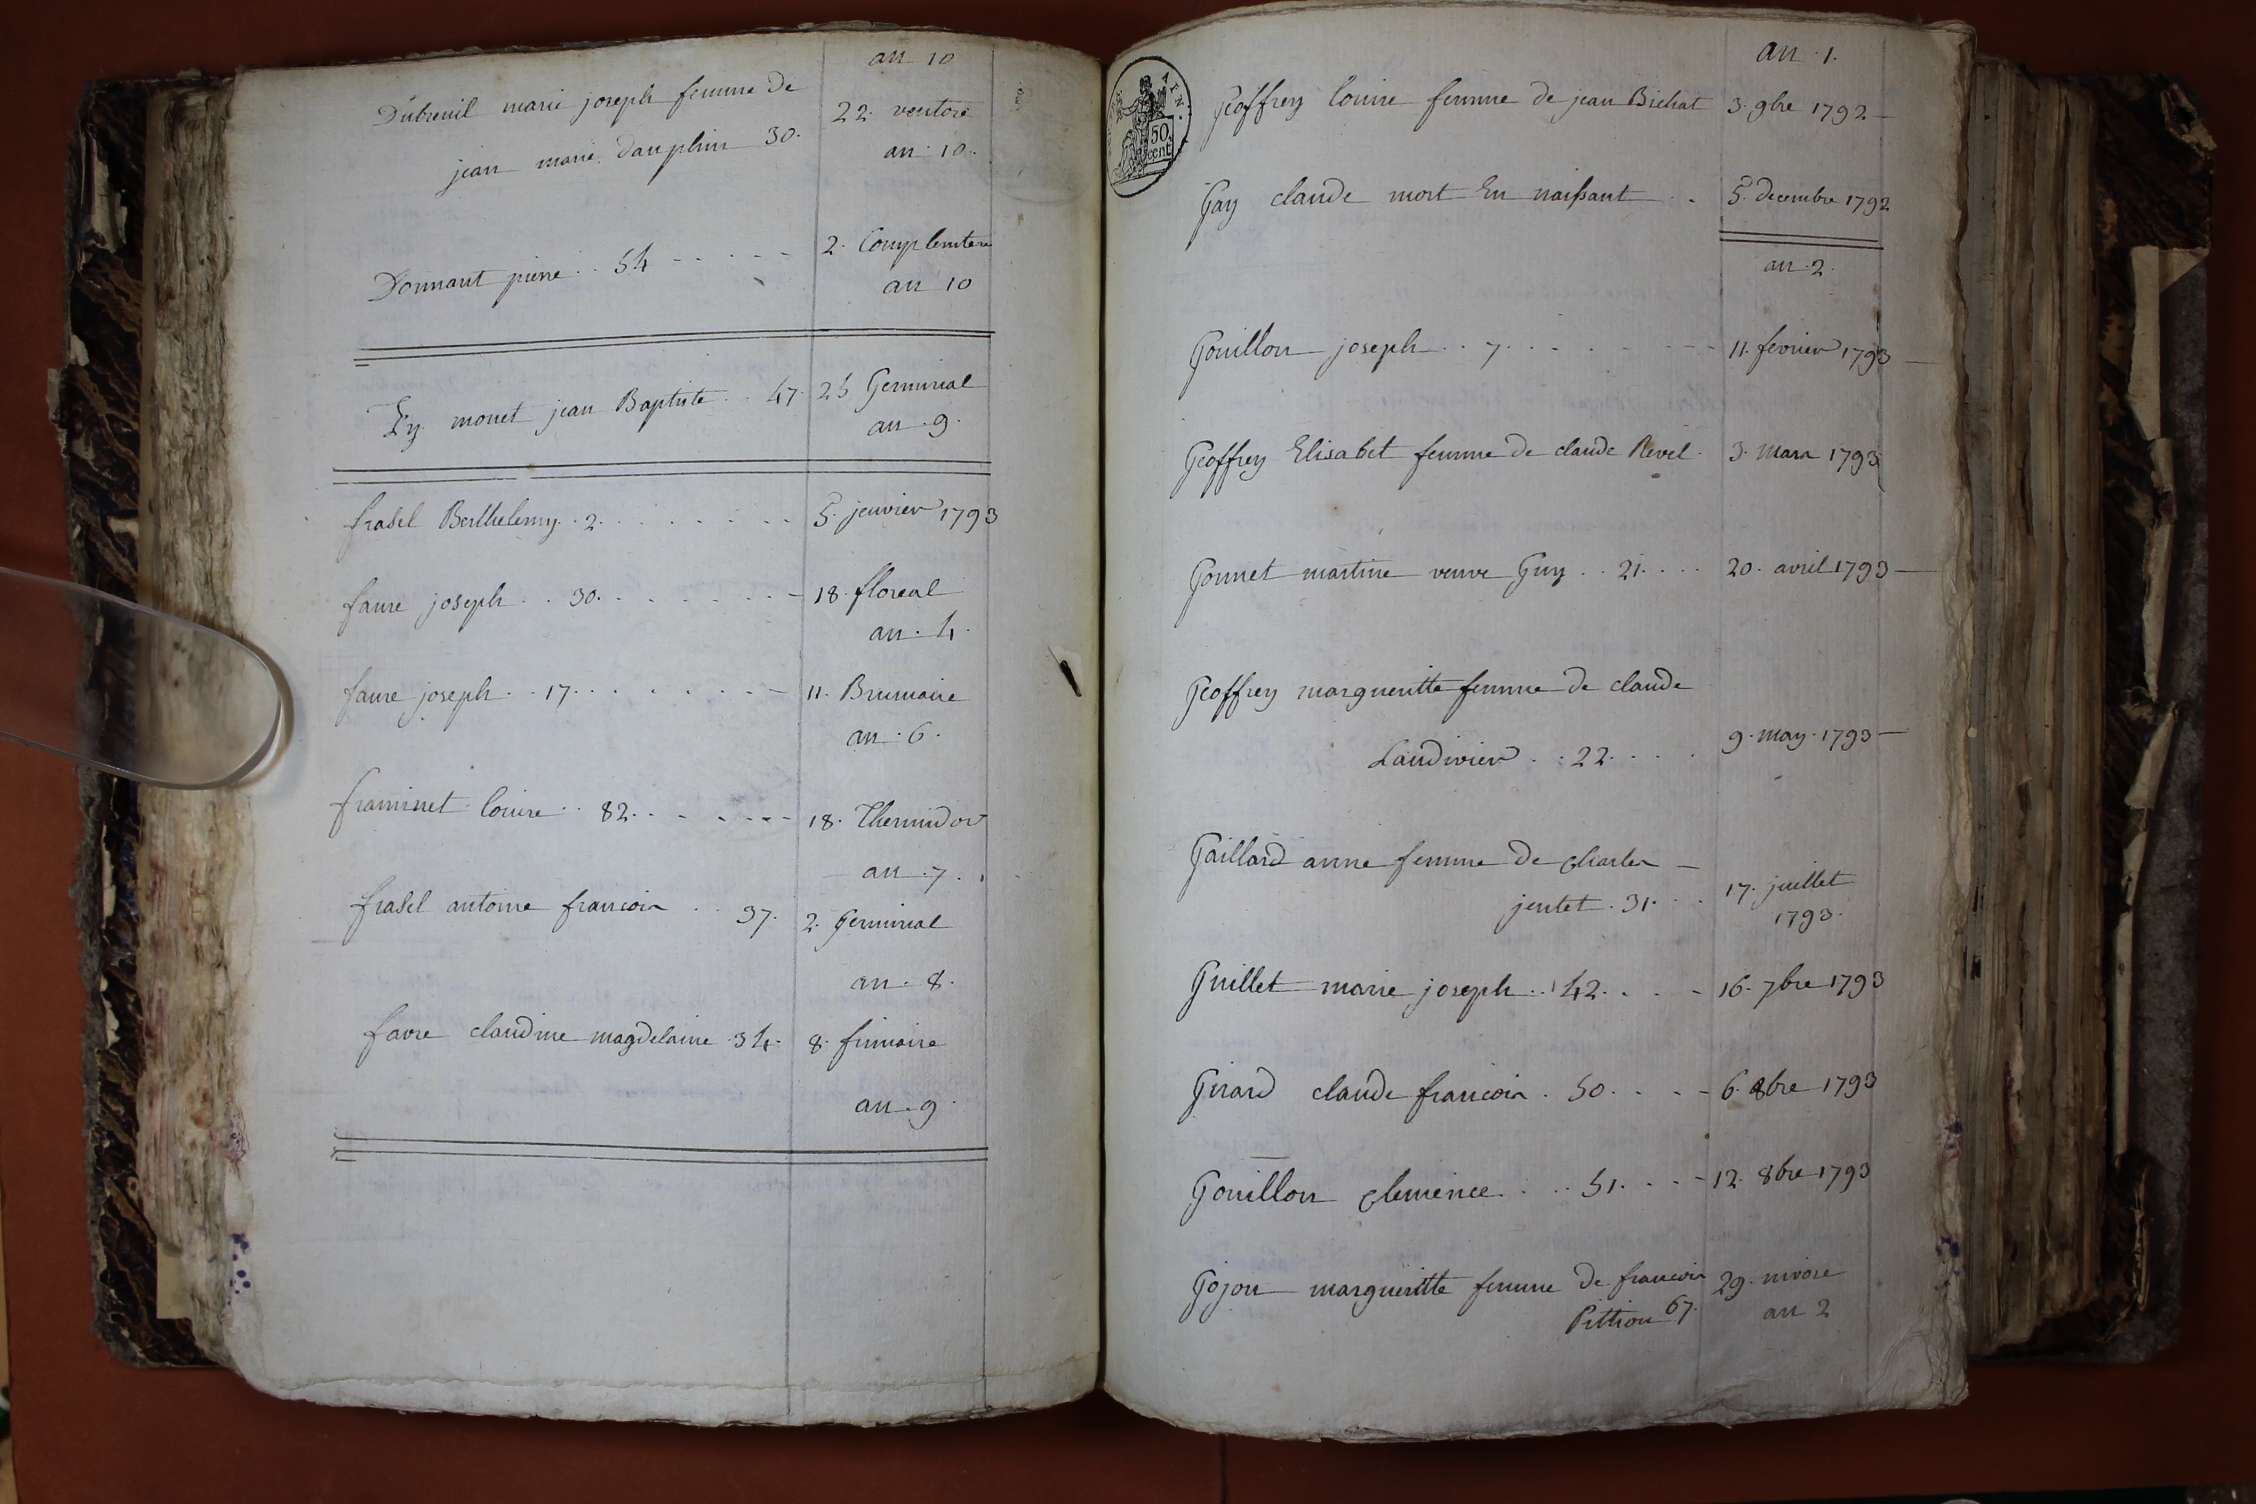 an 10
Dubreuil marie joseph femme de
22. ventose
jean marie dauphin 30.
an 10.
Donnant pierre .. 54 - - - - -
2. Complemtere
an 10
Ey monet jean Baptiste .. 47.
25 Germinal
an . 9 .
frasel Berthelemy . 2. . . . . . . .
5. jenvier 1793
faure joseph . . 30. . . . . . . .
18. floreal
an . 4 .
faure joseph . . 17. . . . . . . .
11. Brumaire
an . 6 .
framinet louise . . 82. . - . - - -
18. Thermidor
an . 7 .
frasel antoine francois . . 37.
2. Germinal
an . 8 .
favre claudine magdelaine . 34.
8. frimaire
an . 9 .
an . 1.
50 cent
Geoffrey louise femme de jean Bichat
3. 9bre 1792 —
Gay claude mort En naissant . .
5. decembre 1792
an . 2 .
Gouillon joseph . . 7 . . . . . . .
11. fevrier 1793 —
Geoffrey Elisabet femme de claude Revel .
3. mars 1793
Gonnet martine veuve Guy . . 21. . . .
20. avril 1793 —
Geoffrey margueritte femme de claude
Landivier . . 22. . . .
9. may . 1793 —
Gaillard anne femme de charles —
jentet . 31. . .
17. juillet
1793.
Guillet marie joseph . . 42. . . .
16. 7bre 1793
Girard claude francois . 50. . . .
6. 8bre 1793
Gouillon clemence . . . 51. . . .
12. 8bre 1793
Gojon margueritte femme de francois
29. nivose
Pittion 67.
an 2